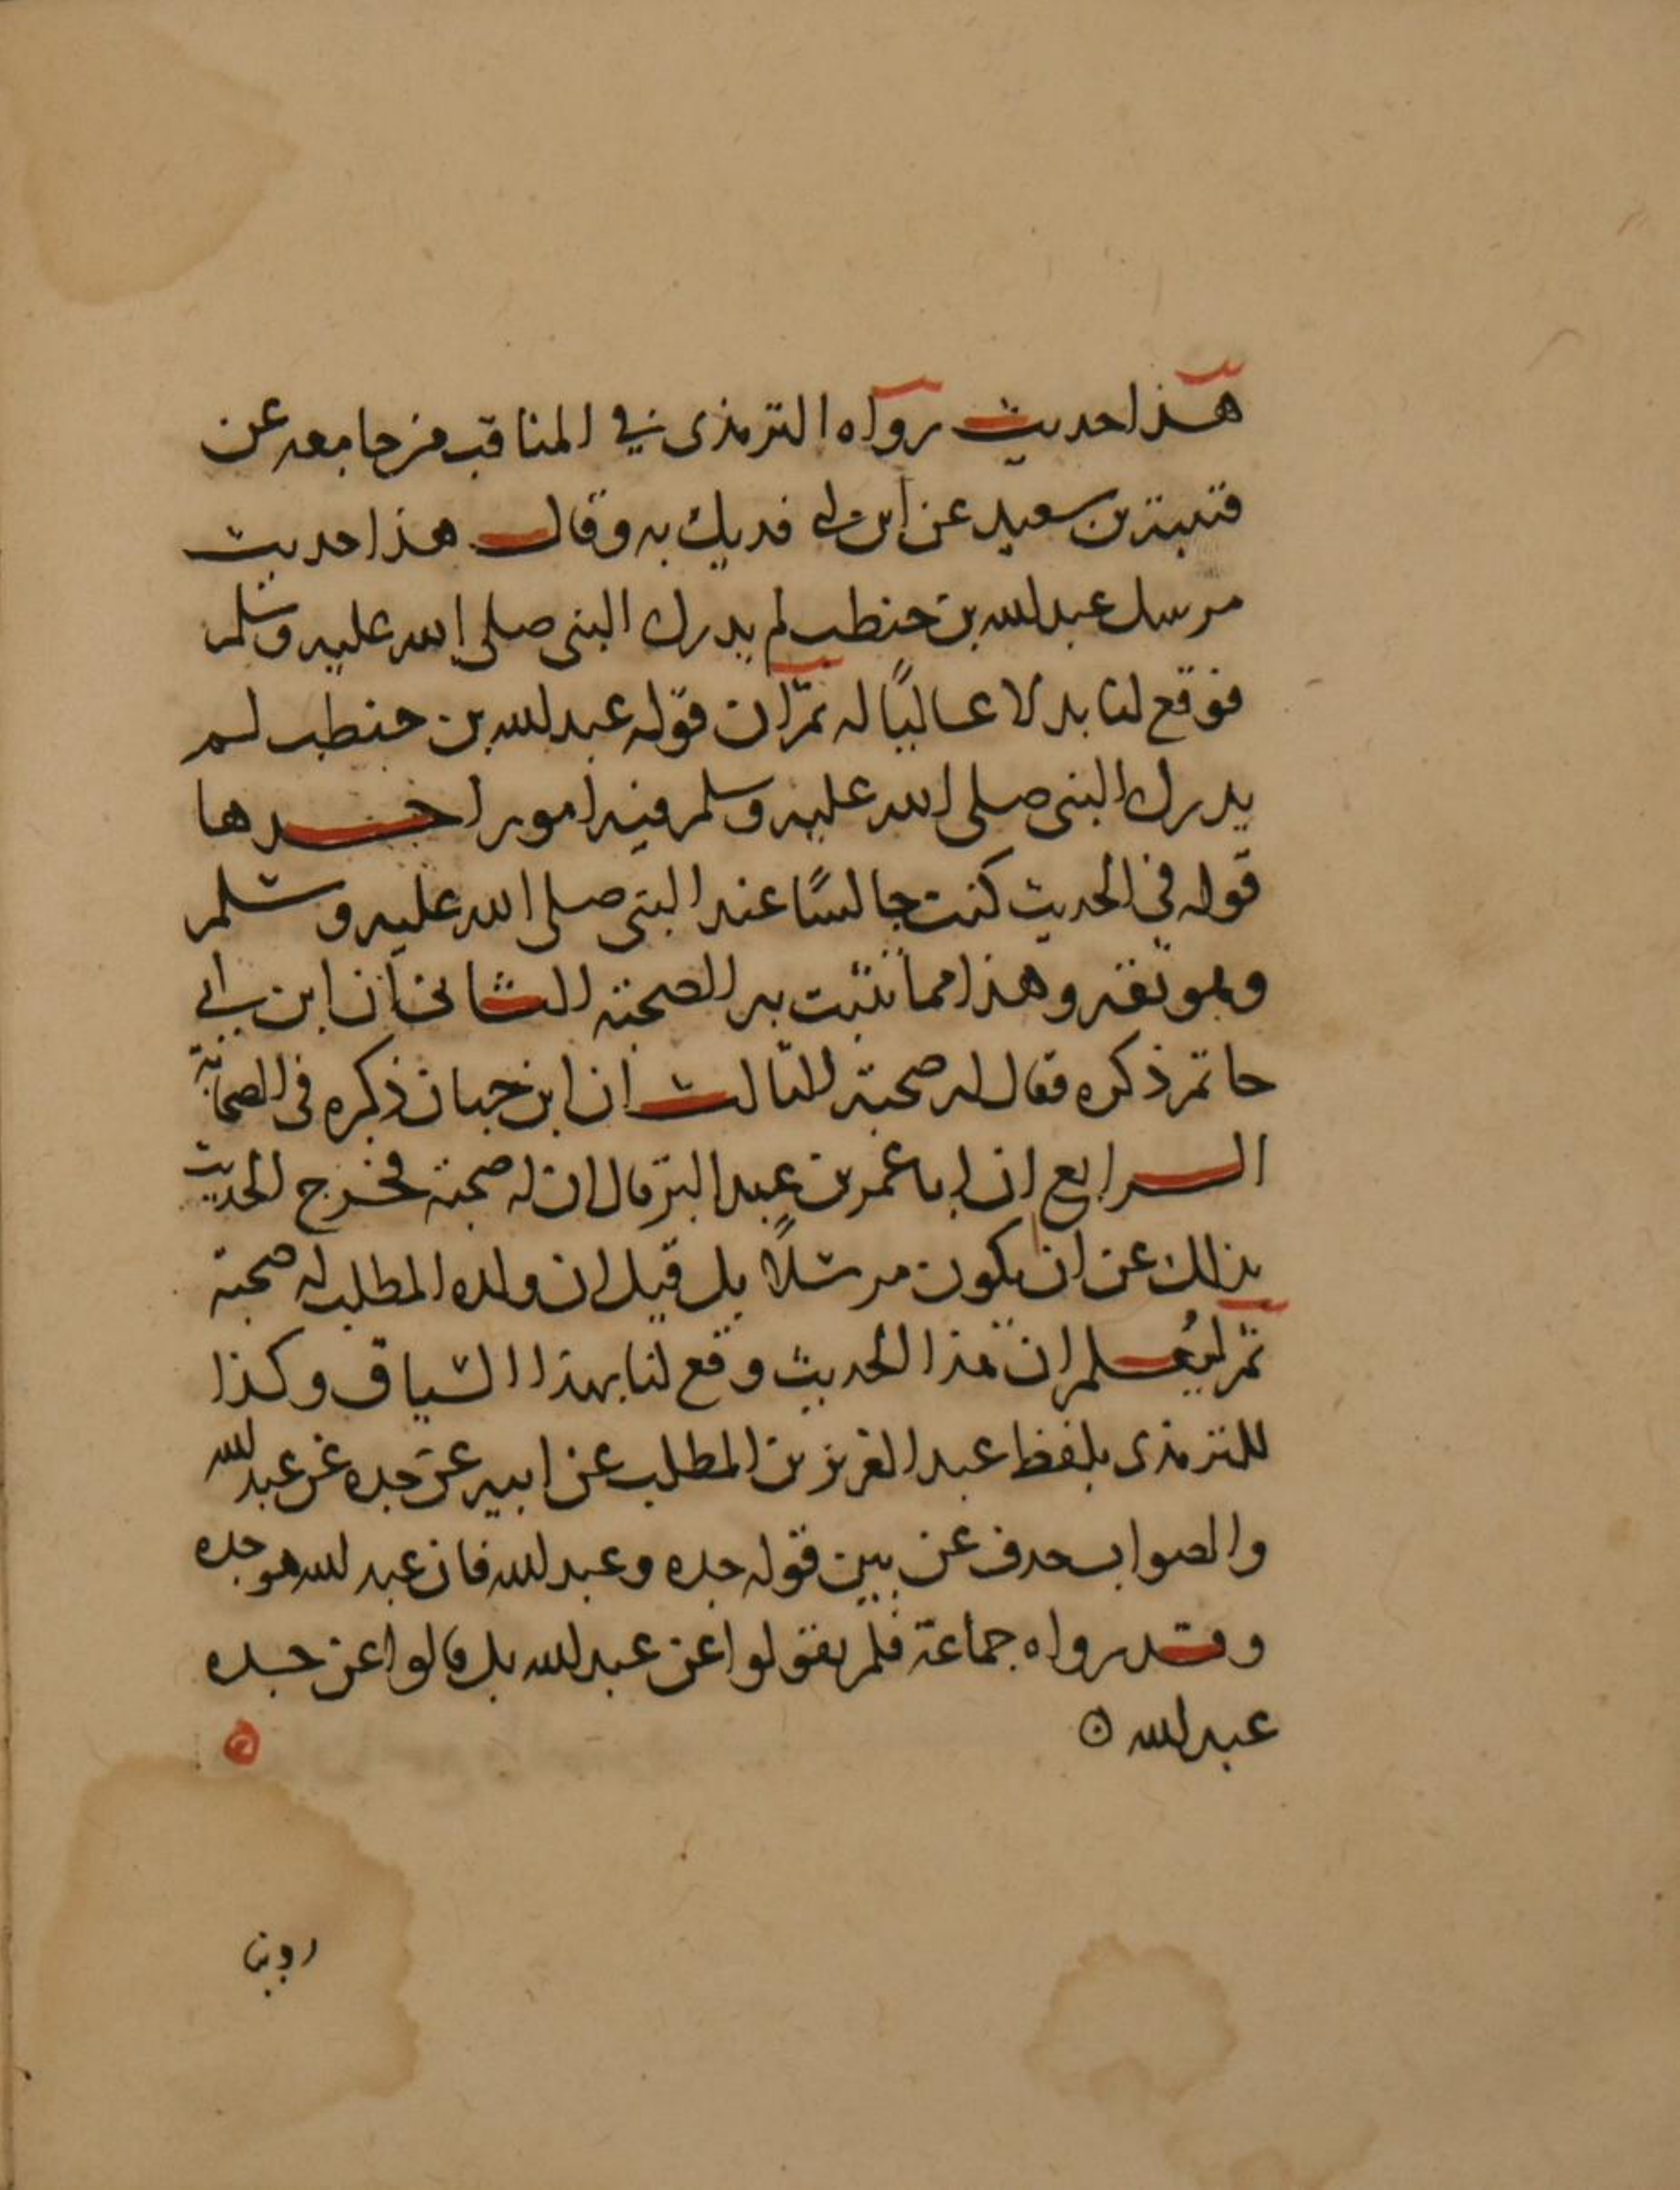 هذا حديث رواه الترمذى في المناقب من جامعه عن
قتيبة بن سعيد عن ابن ابي فديك به وقال هذا حديث
مرسل عبد الله بن حنطب لم يدرك النبى صلى الله عليه وسلم
فوقع لنا بدلا عاليًا له ثمّ ان قوله عبد الله بن حنطب لم
يدرك النبى صلى الله عليه وسلم فيه امور احدها
قوله فى الحديث كنت جالسًا عند النبى صلى الله عليه وسلم
وهو ثقة وهذا مما تثبت به الصحبة الثانى ان ابن ابي
حاتم ذكره فقال له صحبة الثالث ان ابن حبان ذكره فى الصحابة
الرابع ان ابا عمر بن عبد البرّ قال ان له صحبة فخرج الحديث
بذلك عن ان يكون مرسلًا بل قيل ان ولده المطلب له صحبة
ثمّ ليُعلم ان هذا الحديث وقع لنا بهذا السياق وكذا
للترمذى بلفظ عبد العزيز بن المطلب عن ابيه عن جده عن عبد الله
والصواب حذف عن بين قوله جده وعبد الله فان عبد الله هو جده
وقد رواه جماعة فلم يقولوا عن عبد الله بل قالوا عن جده
عبد الله ه
روينا